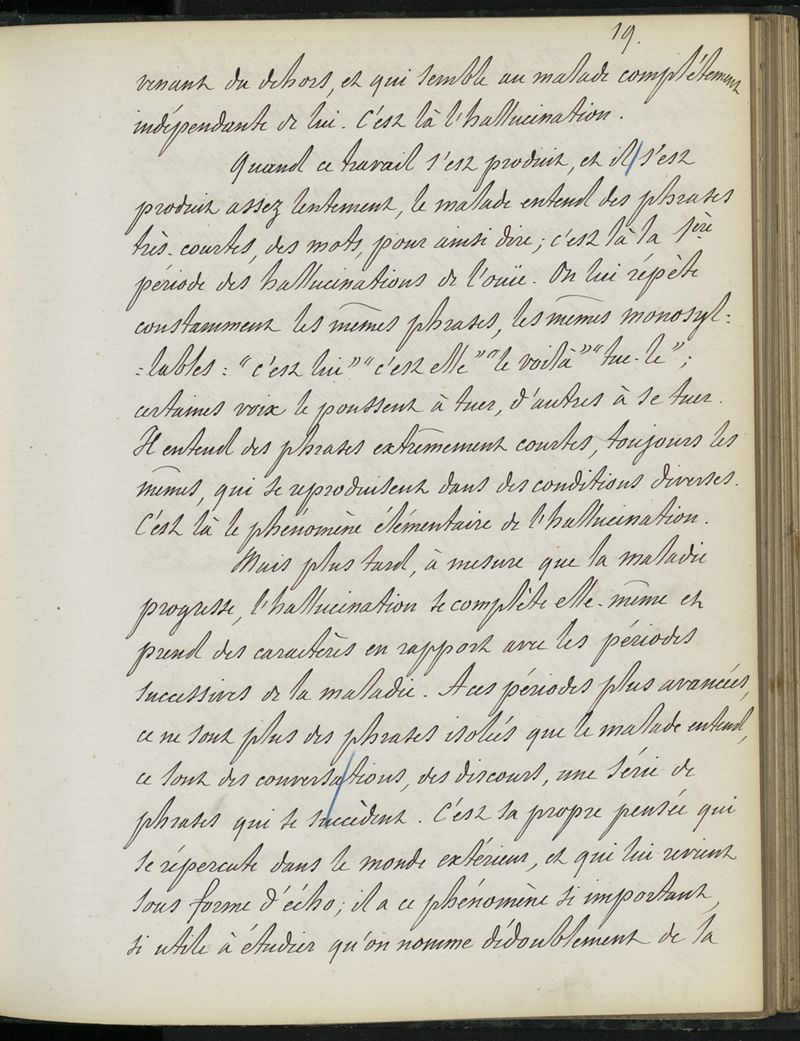 19.
venant du dehors, et qui semble au malade complétement
indépendante de lui. C'est là l'hallucination.
Quand ce travail s'est produit, et il s'est
produit assez lentement, le malade entend des phrases
très-courtes, des mots, pour ainsi dire; c'est là la 1ère
période des hallucinations de l'ouïe. On lui répète
constamment les mêmes phrases, les mêmes monosyl=
=lables : "c'est lui" "c'est elle" "le voilà" "tue-le";
certaines voix le poussent à tuer, d'autres à se tuer.
Il entend des phrases extrêmement courtes, toujours les
mêmes, qui se reproduisent dans des conditions diverses.
C'est là le phénomène élémentaire de l'hallucination.
Mais plus tard, à mesure que la maladie
progresse, l'hallucination se complète elle-même et
prend des caractères en rapport avec les périodes
successives de la maladie. A ces périodes plus avancées,
ce ne sont plus des phrases isolées que le malade entend,
ce sont des conversations, des discours, une série de
phrases qui se succèdent. C'est sa propre pensée qui
se répercute dans le monde extérieur, et qui lui revient
sous forme d'écho; il a ce phénomène si important,
si utile à étudier qu'on nomme dédoublement de la